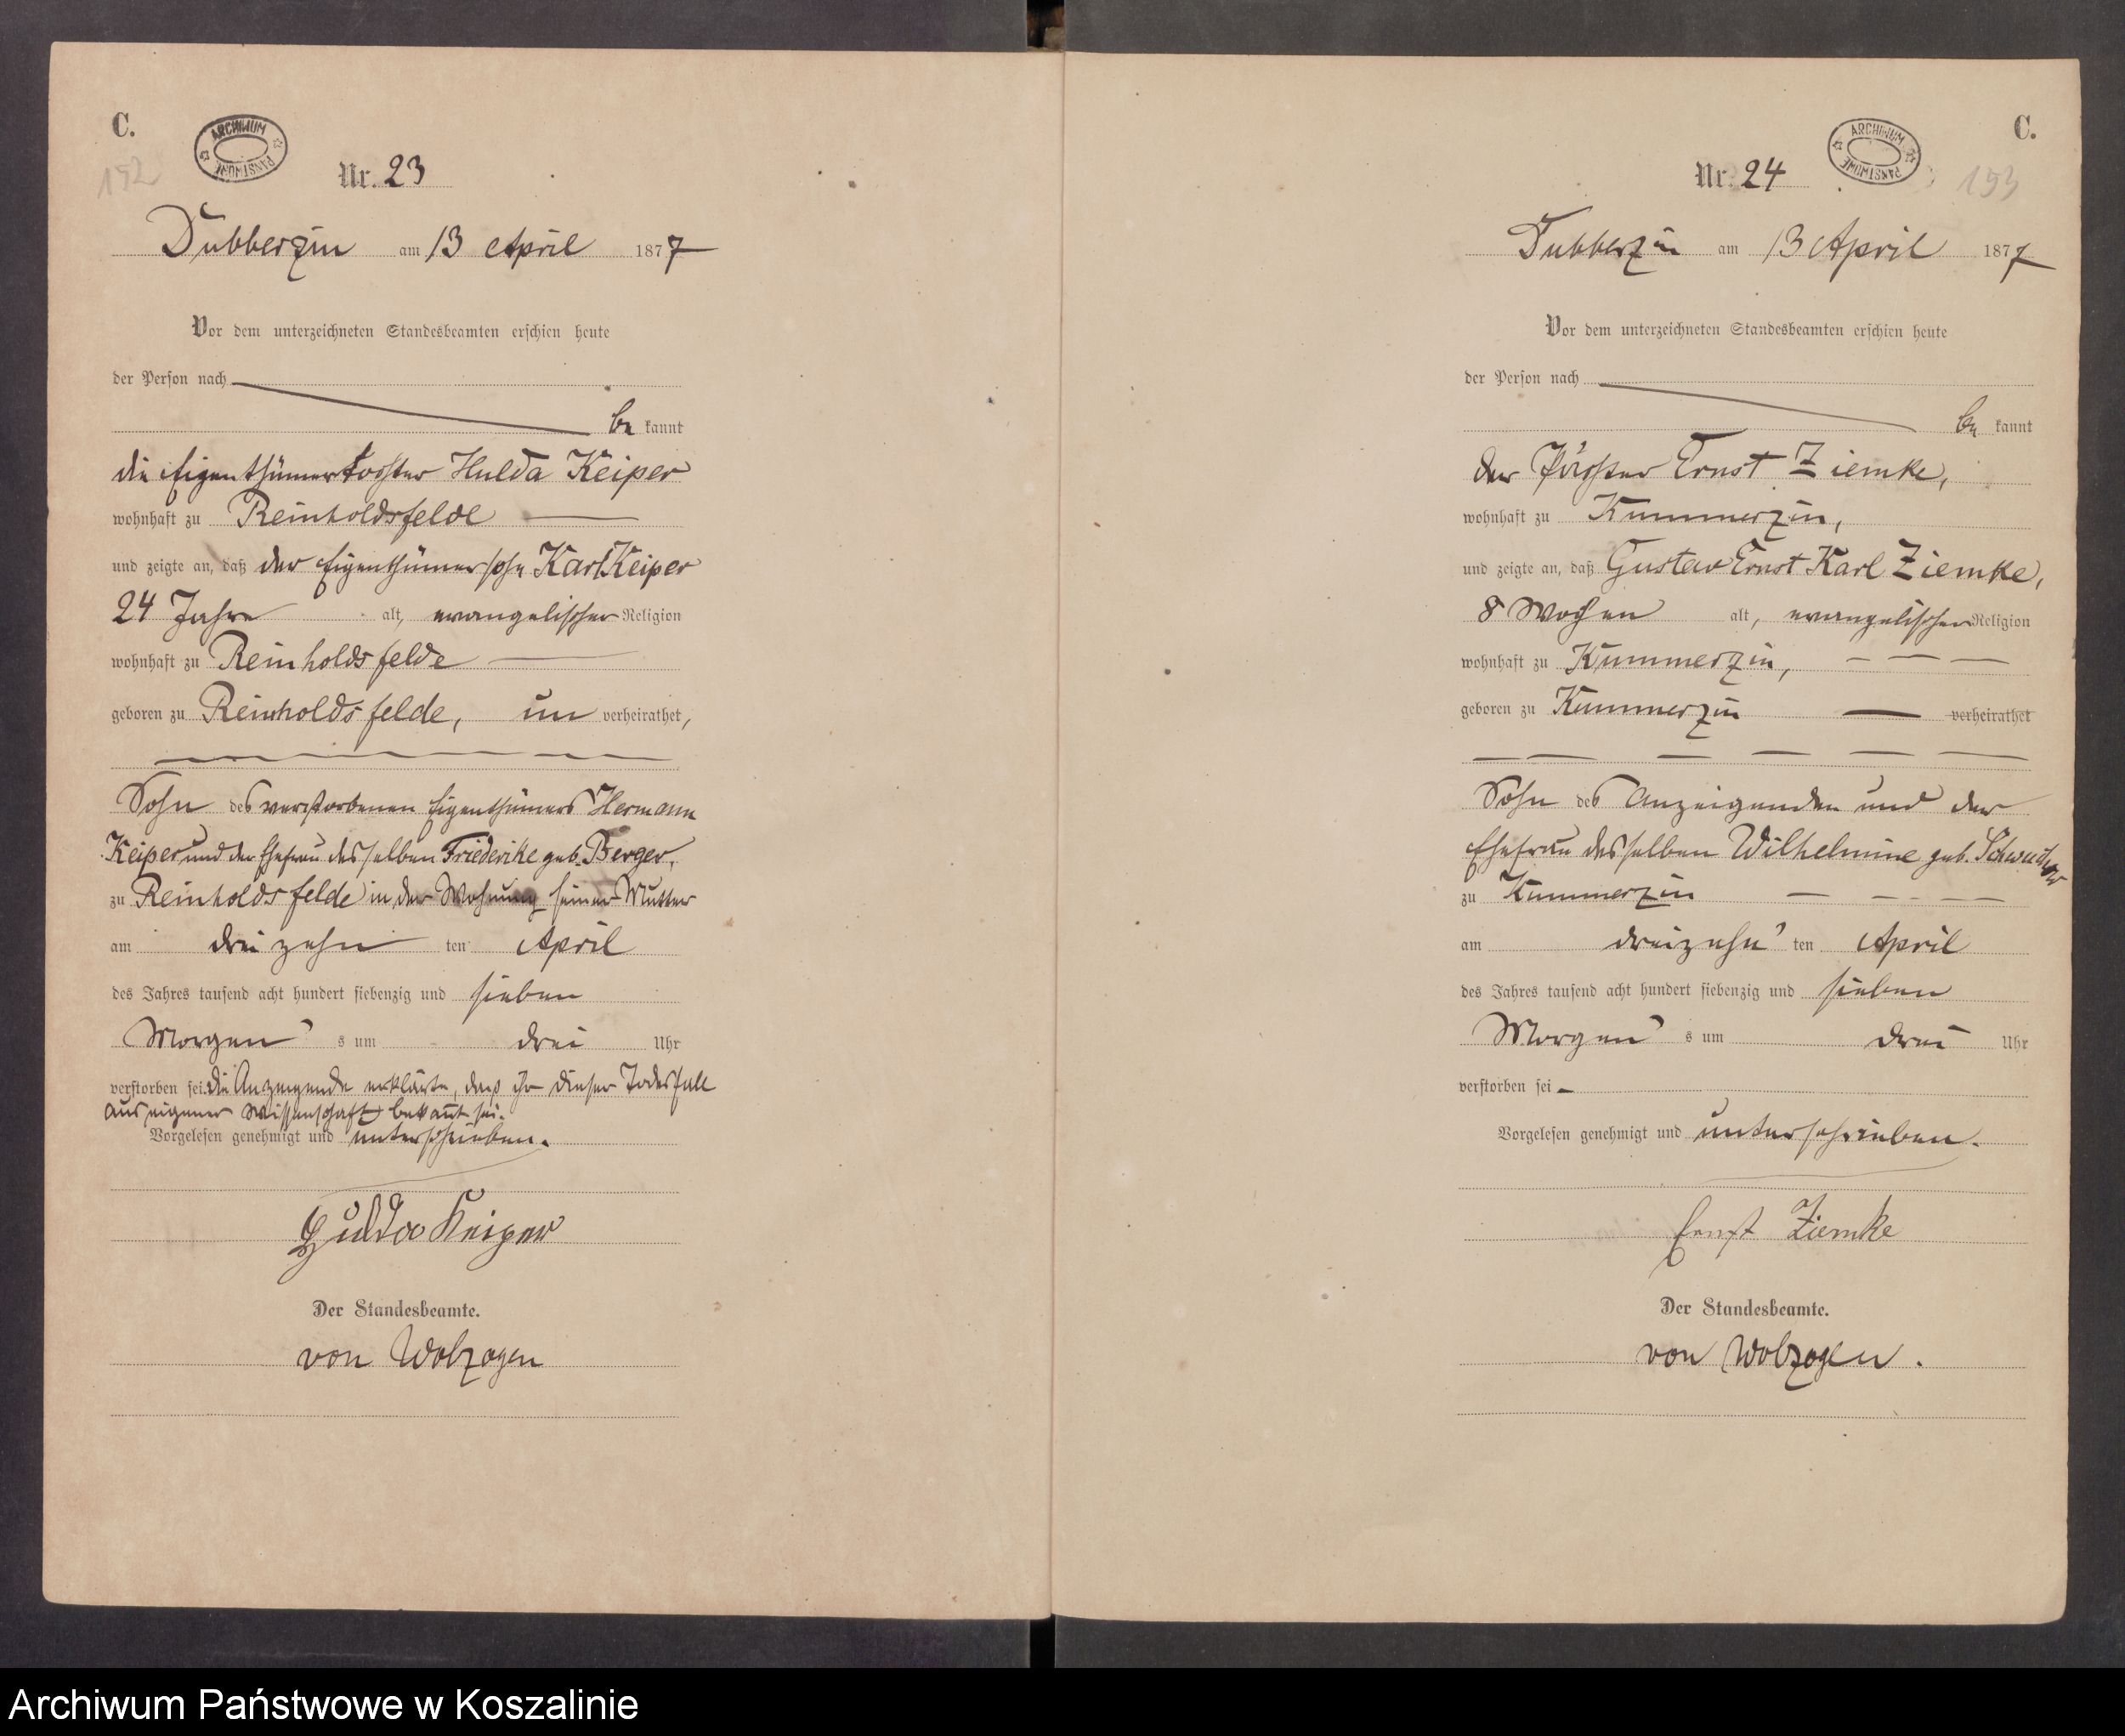 C.
ARCHIWUM PAŃSTWOWE
152
Nr. 23
Dubberzin am 13 April 1877
Vor dem unterzeichneten Standesbeamten erschien heute
der Person nach
be kannt
die Eigenthümertochter Hulda Keiper
wohnhaft zu Reinholdsfelde
und zeigte an, daß der Eigenthümersohn Karl Keiper
24 Jahre alt, evangelischer Religion
wohnhaft zu Reinholdsfelde
geboren zu Reinholdsfelde, un verheirathet,
Sohn des verstorbenen Eigenthümers Hermann
Keiper und der Ehefrau desselben Friederike geb. Berger,
zu Reinholdsfelde in der Wohnung seiner Mutter
am dreizehn ten April
des Jahres tausend acht hundert siebenzig und sieben
Morgen s um drei Uhr
verstorben sei. Die Anzeigende erklärte, daß ihr dieser Todesfall
aus eigener Wissenschaft bekannt sei.
Vorgelesen genehmigt und unterschrieben.
Hulda Keiper
Der Standesbeamte.
von Wolzogen
C.
ARCHIWUM PAŃSTWOWE
153
Nr. 24
Dubberzin am 13 April 1877
Vor dem unterzeichneten Standesbeamten erschien heute
der Person nach
be kannt
der Förster Ernst Ziemke,
wohnhaft zu Kummerzin,
und zeigte an, daß Gustav Ernst Karl Ziemke,
8 Wochen alt, evangelischer Religion
wohnhaft zu Kummerzin,
geboren zu Kummerzin verheirathet
Sohn des Anzeigenden und der
Ehefrau desselben Wilhelmine geb.
zu Kummerzin
am dreizehn ten April
des Jahres tausend acht hundert siebenzig und sieben
Morgen s um drei Uhr
verstorben sei
Vorgelesen genehmigt und unterschrieben.
Ernst Ziemke
Der Standesbeamte.
von Wolzogen.
Archiwum Państwowe w Koszalinie